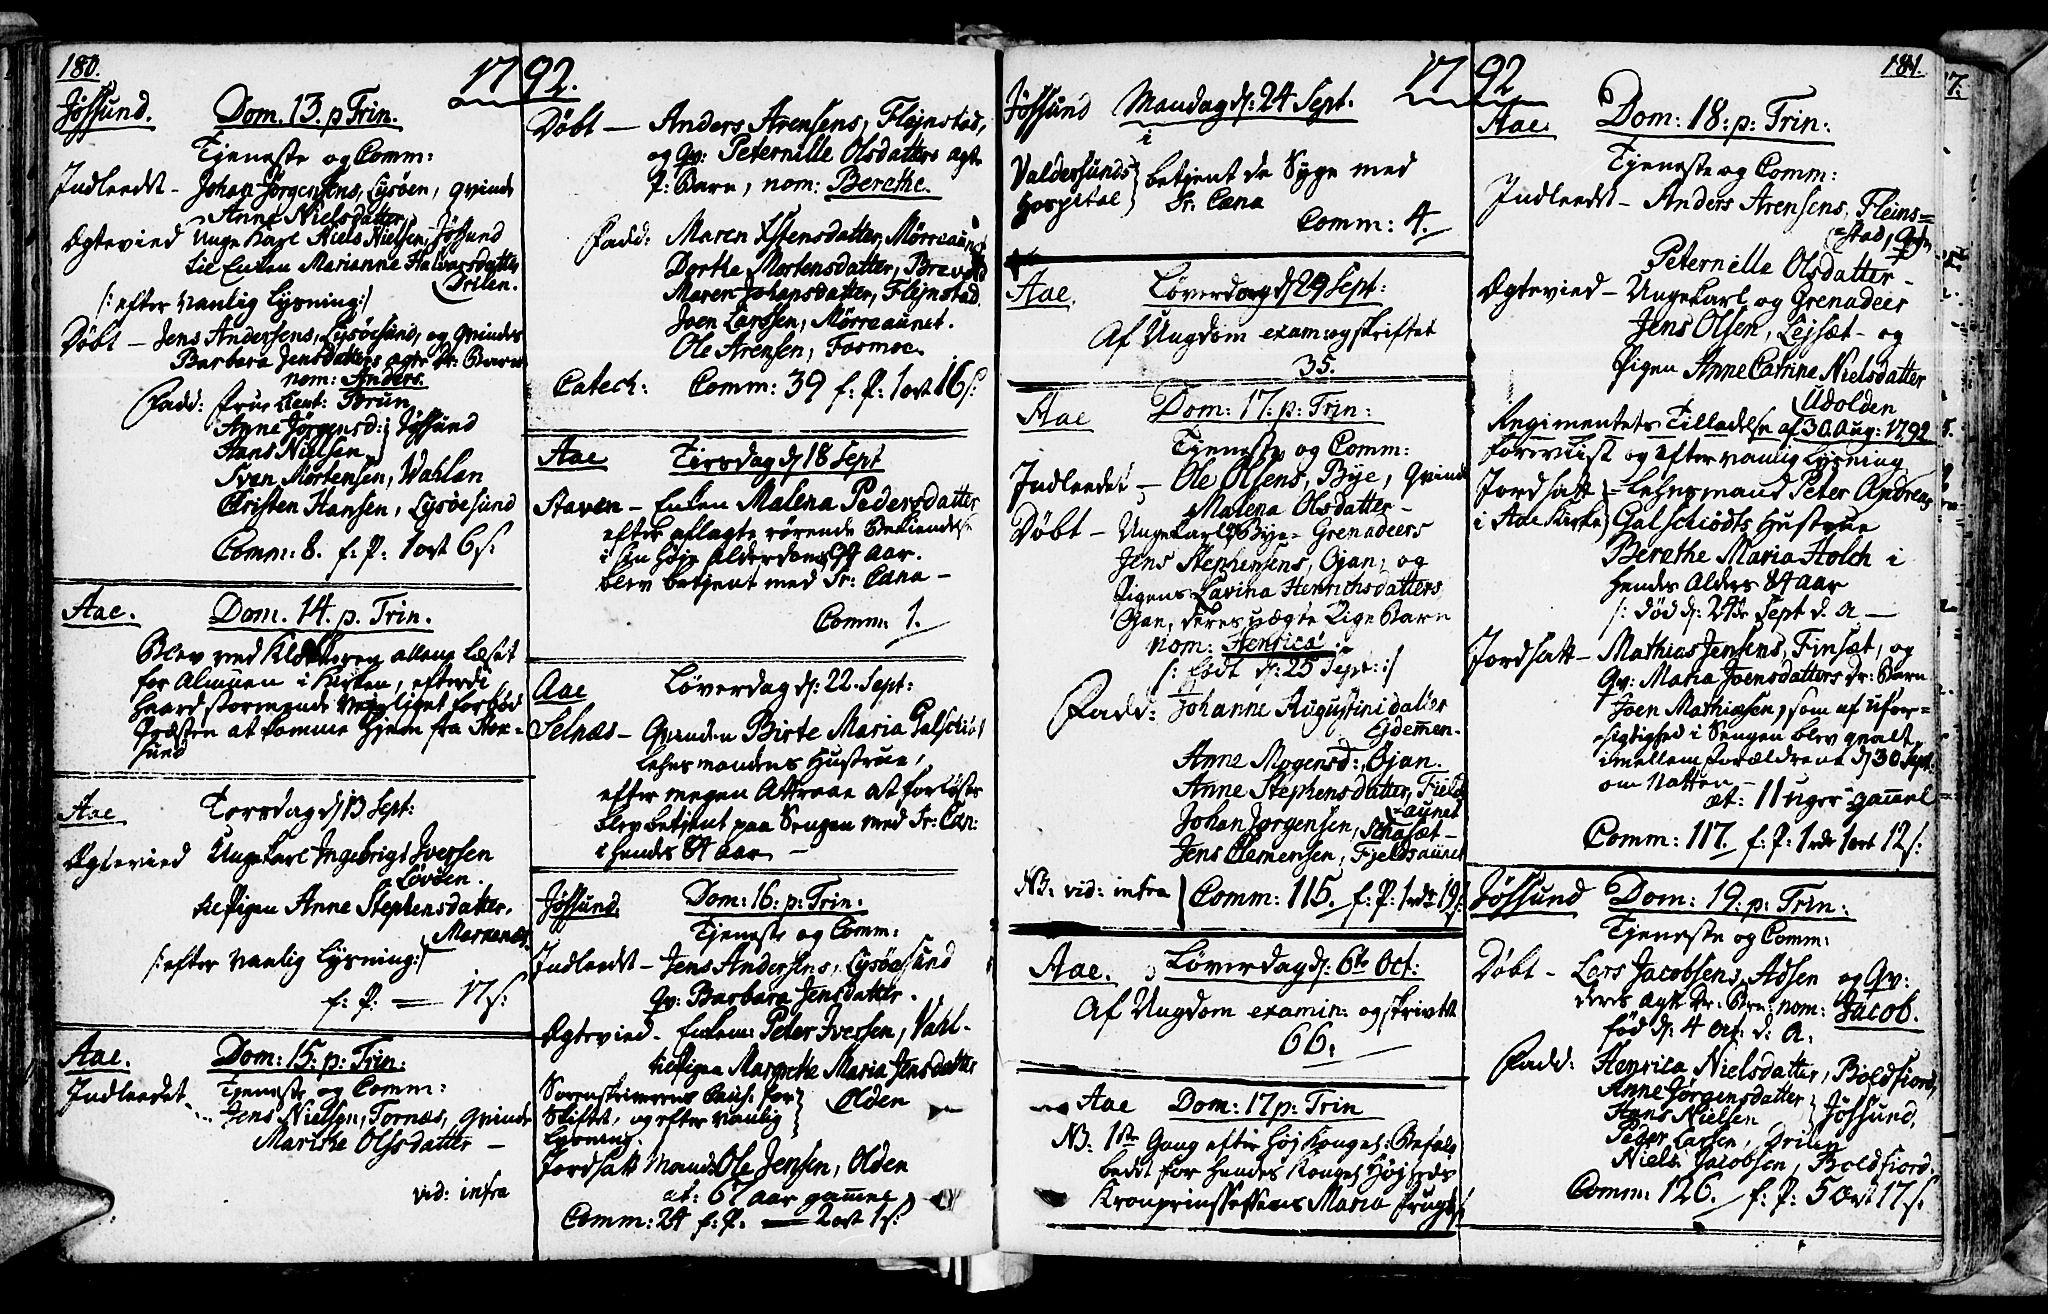 180.
1792.
Jøssund. Dom. 13. p Trin.
Tjeneste og Comm:
Indleedt - Johan Jørgensens, Lysøen, Qvinde
Anne Nielsdatter
Ægtevied Unge Karl Niels Nielsen, Jøssund
til Enken Marianne Halvorsdatter
Drilen.
/: efter vanlig Lysning:/
Døbt - Jens Andersens, Lysøesund, og Qvindes
Barbara Jensdatters ægte Dr: Barn
nom: Anders.
Fadd: Frue Lieut: Brun
Anne Jørgensd: Jøssund
Hans Nielsen
Sven Mortensen, Wahlan
Christen Hansen, Lysøesund
Comm: 8. f: P: 1 ort 6 s:
Aae. Dom. 14. p. Trin.
Blev ved Klokkeren allene læset
for Almuen i Kirken, efterdi
haard stormende Veirliget forbød
Præsten at komme hjem fra Stok-
sund
Aae Torsdag d 13 Sept:
Ægtevied Ungekarl Ingebrigt Iversen
Løvøen.
til Pigen Anne Stephensdatter.
Markenæs.
/: efter vanlig Lysning:/
f: P: — 17 s:
Aae. Dom: 15: p: Trin:
Indleedet - Tjeneste og Comm:
Jens Nielsen, Tornæs, Qvinde
Marithe Olsdatter -
vid: infra
Døbt - Anders Arensens, Flejnstad,
og Qv: Peternille Olsdatters ægte
P: Barn, nom: Berethe.
Fadd: Maren Estensdatter, Mørreaunet
Dorthe Mortensdatter, Brevold
Maren Johansdatter, Flejnstad.
Joen Larssen, Mørreaunet.
Ole Arensen, Fosmoe.
Catech: Comm: 39 f: P: 1 ort 16 s:
Aae Tirsdag d 18 Sept
Staven - Enken Malena Pedersdatter
efter aflagte rørende Bekiendelse
i sin høje Alderdom 97 aar.
blev betjent med Sr: Cæna -
Comm: 1.
Aae Løverdag d: 22. Sept:
Selnæs - Qvinden Birte Maria Galschiøt
Lehnsmandens Hustrue,
efter megen Attraae at forløses
blev betjent paa Sengen med Sr: Cæn:
i hendes 84 aar -
Jøssund. Dom: 16: p: Trin:
Tjeneste og Comm:
Indleedt - Jens Andersens, Lysøesund
Qv: Barbara Jensdatter.
Ægtevied - Enkem: Peter Iversen, Vahl-
til Pigen Margrethe Maria Jensdatter
Sorenskriverens Caut: for
Skiftet, og efter vanlig
Lysning.
Olden
Jordsatt Mand: Ole Jensen, Olden
æt: 67 aar gammel
Comm: 24 f: P. — 2 ort 1 s:
1792
181.
Jøssund Mandag d: 24 Sept.
i
Valdersunds betjent de Syge med
Hospital Sr. Cæna
Comm: 4.
Aae. Løverdag d 29 Sept:
Af Ungdom exam: og skriftet
35.
Aae Dom: 17: p: Trin:
Tjeneste og Comm:
Indleedet - Ole Olsens, Bye, Qvinde
Malena Olsdatter -
Døbt - Ungekarl Bye - Grenadeers
Jens Stephensens, Ojan, og
Pigens Lavina Henrichsdatters
Ojan, deres uægte Pige Barn
nom: Henrica
/: født d: 25 Sept::/
Fadd: Johanne Augustinidatter
Ejdemen.
Anne Mogensd:, Ojan.
Anne Stephensdatter, Field-
aunet
Johan Jørgensen, Schasæt -
Jens Clemensen, Fjeldsaunet
NB: vid: infra Comm: 115. f: P: 1 rdr 19 s:
Aae. Løverdag d: 6te Oct:
Af Ungdom examin: og skrivtet
66:
Aae Dom: 17 p: Trin
NB: 1ste Gang efter høj Kongel: Befal:
bedet for Hendes Kongel Højheds
Kronprinssessens Maria Frugts:
Aae. Dom: 18: p: Trin:
Tjeneste og Comm:
Indleedt - Anders Arensens, Fleins=
=stad, Qvin
Peternille Olsdatter -
Ægtevied - Ungekarl og Grenadeer
Jens Olsen, Lejsæt - og
Pigen Anne Catrina Nielsdatter
Udolden
Regimentets Tilladelse af 30 Aug: 1792
foreviist og efter vanlig Lysning
Jordsatt - Lehnsmand Peter Andreas
i Aae Kirke Galschiødts Hustrue
Berethe Maria Holch i
hendes Alders 84 aar
/: død d: 24de Sept d. A -
Jordsatt - Mathias Jensens, Finsæt, og
Qv: Maria Joensdatters Dr: Barn
Joen Mathiasen, som af ufor=
sigtighed i Sengen blev qvalt
imellem Forældrene d 30 Sept:
om Natten -
æt: 11 uger gammel
Comm: 117. f: P: 1 rdr 1 ort 12 s:
Jøssund Dom: 19: p: Trin:
Tjeneste og Comm:
Døbt - Lars Jacobsens, Adsen og Qv:
deres ægte Dr: Brn: nom: Jacob.
fød d: 4 Oct: d: A:
Fadd: Henrica Nielsdatter, Boldfiord,
Anne Jørgensdatter
Hans Nielsen Jøssund,
Peder Larsen, Drilen
Niels Jacobsen, Boldfiord.
Comm: 126. f: P: 5 Ort 17 s: